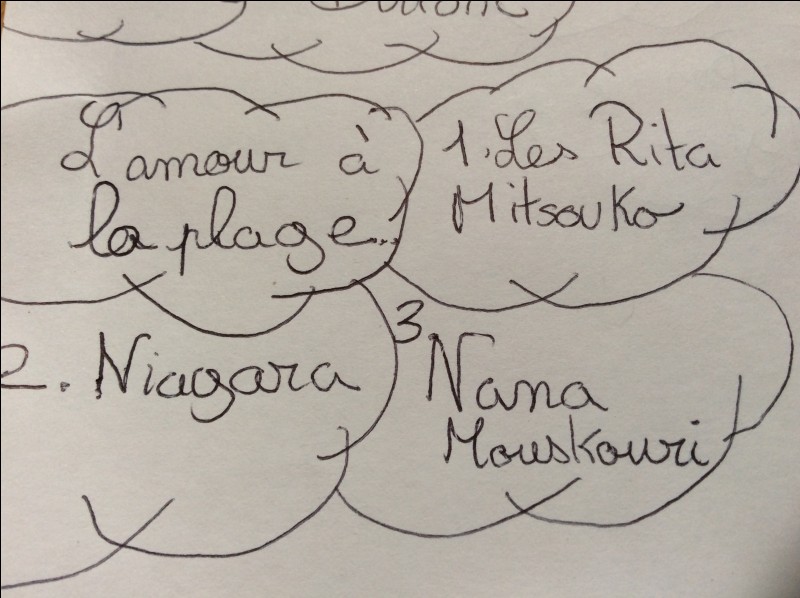 L'amour à
la plage..
1. Les Rita
Mitsouko
2. Niagara
3
Nana
Mouskouri